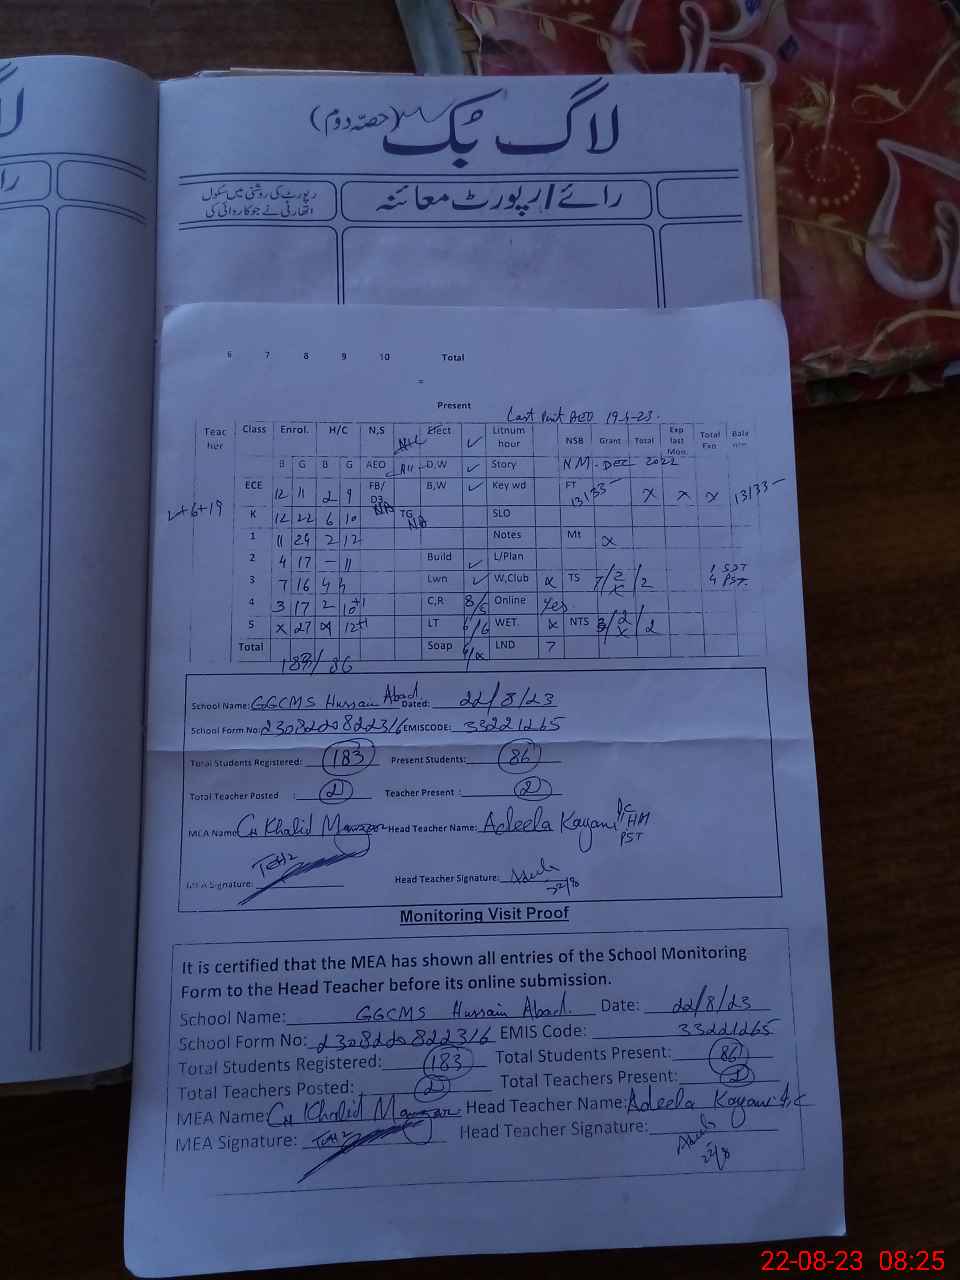 لاگ بُک (حصّہ دوم)
رائے/رپورٹ معائنہ
رپورٹ کی روشنی میں سکول
اتھارٹی نے جو کاروائی کی
6 7 8 9 10 Total
=
Present
Last Visit AEO 19-4-23.
Teacher Class Enrol. H/C N,S Elect ✓ Litnum hour NSB Grant Total Exp last Mon. Total Exp Balance
B G B G AEO D,W ✓ Story NM-DEC 2022
ECE 12 11 2 9 FB/D3 NA B,W ✓ Key wd FT 13133- x x x 13133-
2+6+19
K 12 22 6 10 TG NA SLO
1 11 24 2 12 Notes Mt x
2 4 17 - 11 Build ✓ L/Plan
3 7 16 4 4 Lwn ✓ W,Club x TS 7/2/x/2 1 SST 4 PST.
4 3 17 2 10+1 C,R 8/5 Online Yes
5 x 27 x 12+1 LT 6/6 WET. x NTS 3/2/x/2
Total 183/86 Soap LND 7
School Name: GGCMS Hussain Abad Dated: 22/8/23
School Form No: 2308220822316 EMISCODE: 33221265
Total Students Registered: 183 Present Students: 86
Total Teacher Posted : 2 Teacher Present : 2
MEA Name: CH Khalid Head Teacher Name: Adeela Kayani I/C HM PST
MEA Signature: Head Teacher Signature: 22/8
Monitoring Visit Proof
It is certified that the MEA has shown all entries of the School Monitoring
Form to the Head Teacher before its online submission.
School Name: GGCMS Hussain Abad. Date: 22/8/23
School Form No: 2308220822316 EMIS Code: 33221265
Total Students Registered: 183 Total Students Present: 86
Total Teachers Posted: 2 Total Teachers Present: 2
MEA Name: CH Khalid Head Teacher Name: Adeela Kayani I/C
MEA Signature: Head Teacher Signature:
22/8
22-08-23 08:25